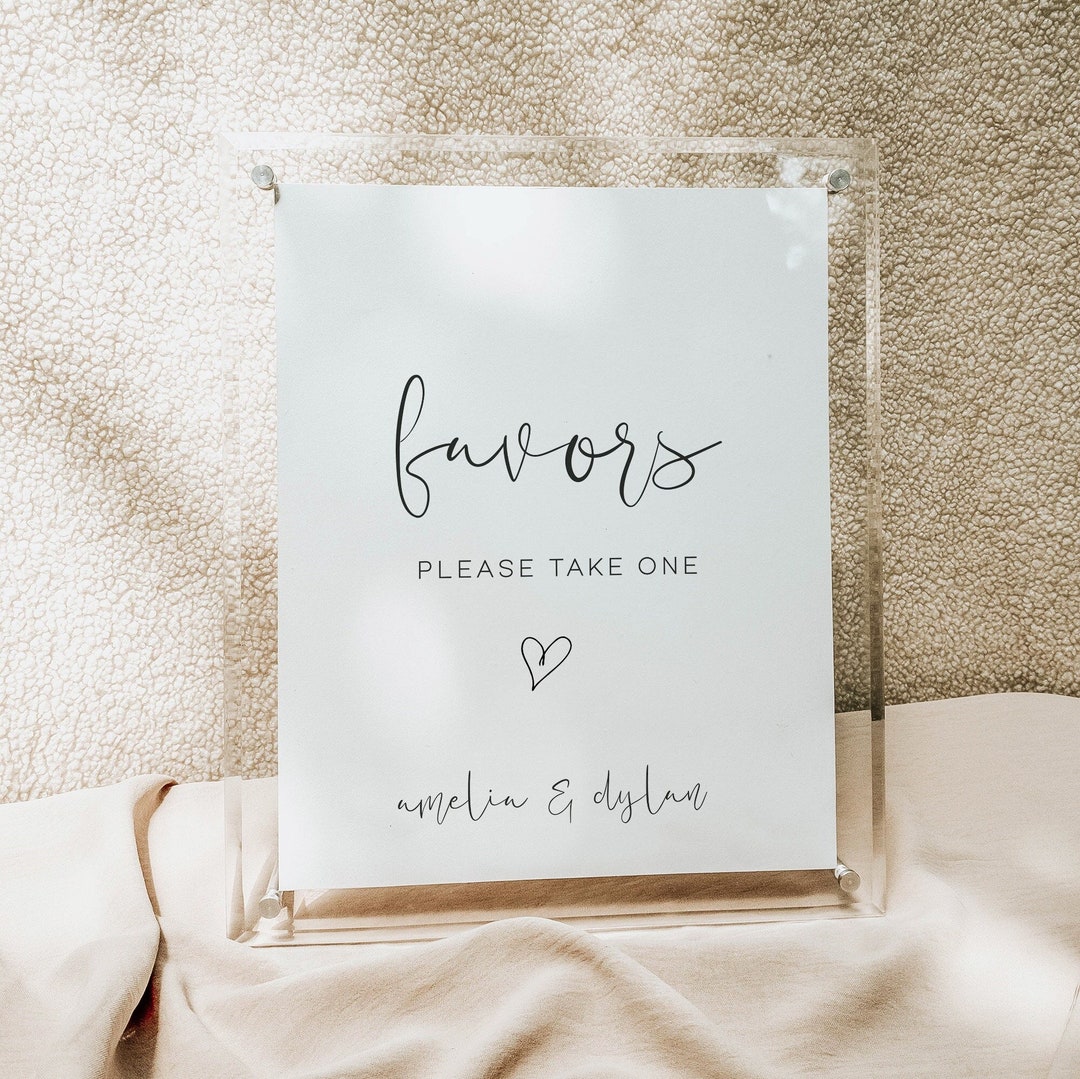 favors
PLEASE TAKE ONE
amelia & dylan